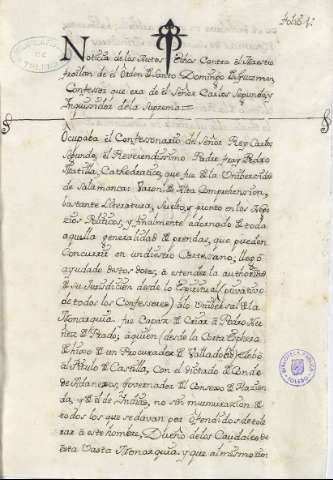 folio 1.
Noticia de los Autos fechos Contra el Maestro
froilan de el Orden de Santo Domingo de Guzman,
Confessor que era de el Señor Carlos Segundo, y
Inquisidor de la Suprema
Ocupaba el Confessonario del señor Rey Carlos
Segundo, el Reverendissimo Padre fray Pedro
Matilla, Cathedratico, que fue de la Universidad
de Salamanca: Varon de Alta Comprehension,
bastante Literatura, suelto, y pronto en los Nego-
zios Politicos, y finalmente adornado de toda
aquella generalidad de prendas, que pueden
Concurrir en un diestro Cortesano; llegó
ayudado destos dotes, á estender la authoridad
de su Jurisdicion desde lo Espiritual (privativo
de todos los Confessores) álo Universal de la
Monarquia: fue Capaz de Criar á Pedro Nu-
ñez de Prado; á quien (desde la Corta Esphera
de hijo de un Procurador de Valladolid) elebó
al titulo de Castilla, con el dictado de Conde
de Adanero; Governador del Consexo de Hazien-
da, y de el de Indias, no sin murmuracion de
todos los que se davan por ofendidos de tole-
rar á este hombre, Dueño de los Caudales de
esta Vasta Monarquia, y que al mismo tiem
BIBLIOTECA PUBLICA
TOLEDO